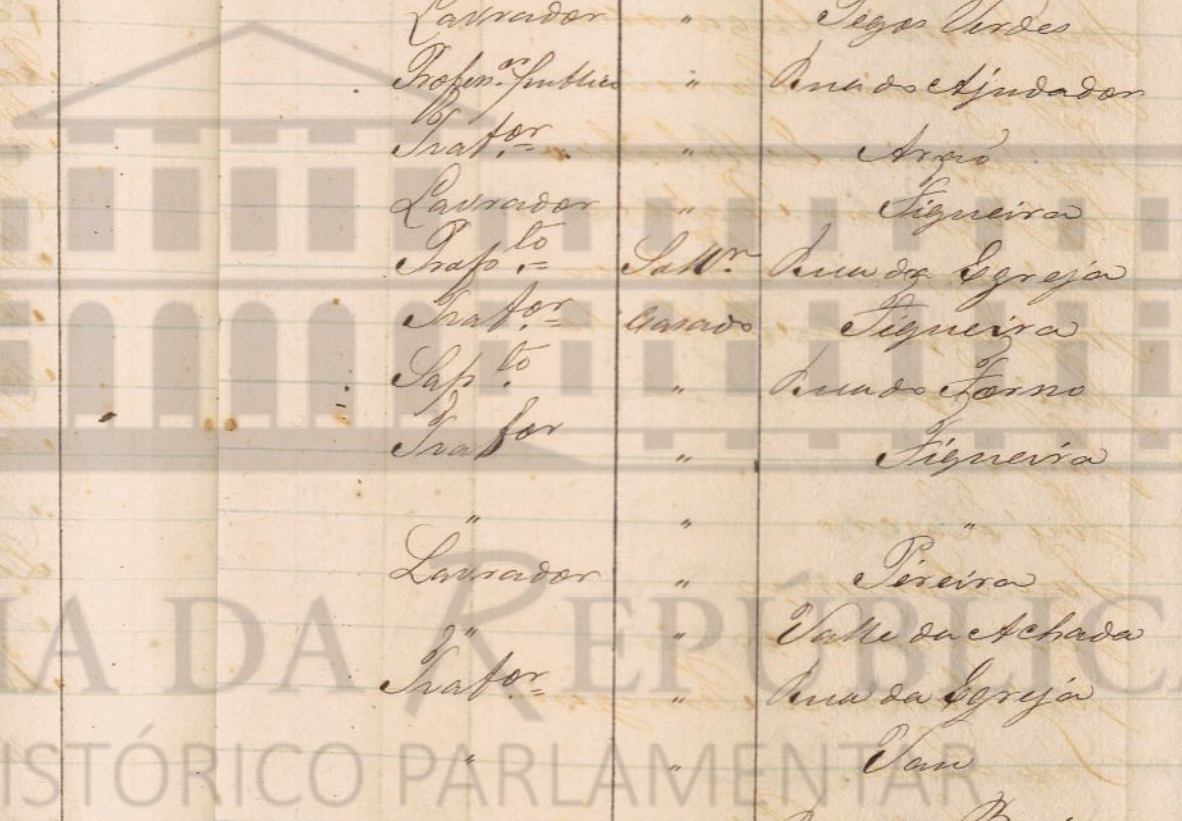 Lavrador " Pegos Verdes
Profes.or publico " Rua do Ajudador
Trab.or " Arão
Lavrador " Figueira
Prop.to Soltr.o Rua da Egreja
Trab.or Casado Figueira
Sap.to " Rua do Forno
Trabor " Figueira
" " "
Lavrador " Pereira
" " Valle da Achada
Trab.or " Rua da Egreja
" " Vau
A DA REPÚBLICA
ISTÓRICO PARLAMENTAR